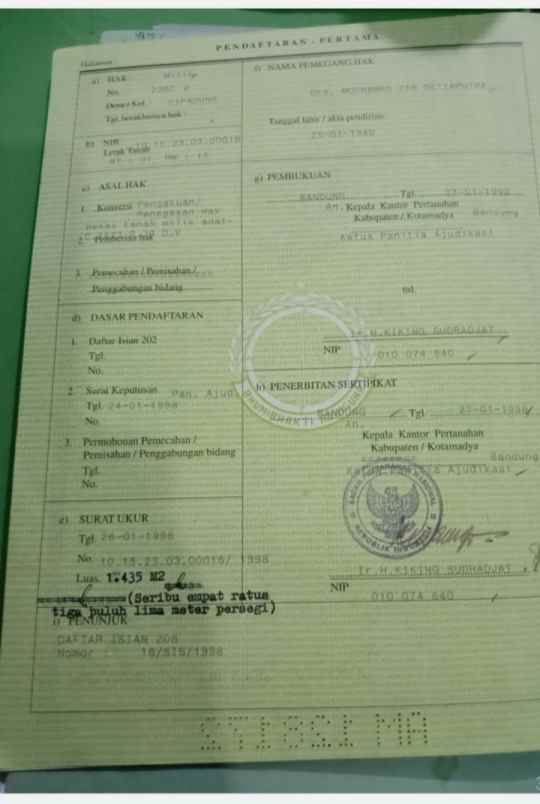 PENDAFTARAN - PERTAMA
Halaman :
a) HAK Milik
No.
Desa / Kel. CIPADUNG
Tgl. berakhirnya hak :
b) NIB 10.15.23.03.00016
Letak Tanah
c) ASAL HAK
1. Konversi Pengakuan/
Penegasan Hak
bekas tanah milik adat
2. Pemberian hak
3. Pemecahan / Pemisahan /
Penggabungan bidang
d) DASAR PENDAFTARAN
1. Daftar Isian 202
Tgl.
No.
2. Surat Keputusan Pan. Ajud
Tgl. 24-01-1998
No.
3. Permohonan Pemecahan /
Pemisahan / Penggabungan bidang
Tgl.
No.
e) SURAT UKUR
Tgl. 26-01-1998
No. 10.15.23.03.00016/ 1998
Luas. 1.435 M2
(Seribu empat ratus
tiga puluh lima meter persegi)
i) PENUNJUK
DAFTAR ISIAN 208
Nomor : 16/SIS/1998
f) NAMA PEMEGANG HAK
DRS. MOCHAMAD
Tanggal lahir / akta pendirian
g) PEMBUKUAN
BANDUNG Tgl. 27-01-1998
An. Kepala Kantor Pertanahan
Kabupaten / Kotamadya Bandung
Ketua Panitia Ajudikasi
ttd.
Ir.H.KIKING SUDRADJAT
NIP 010 074 640
h) PENERBITAN SERTIPIKAT
BANDUNG Tgl 27-01-1998
An.
Kepala Kantor Pertanahan
Kabupaten / Kotamadya
Bandung
Ketua Panitia Ajudikasi
BADAN PERTANAHAN NASIONAL
REPUBLIK INDONESIA
Ir.H.KIKING SUDRADJAT
NIP 010 074 640
BHUMIBHAKTI